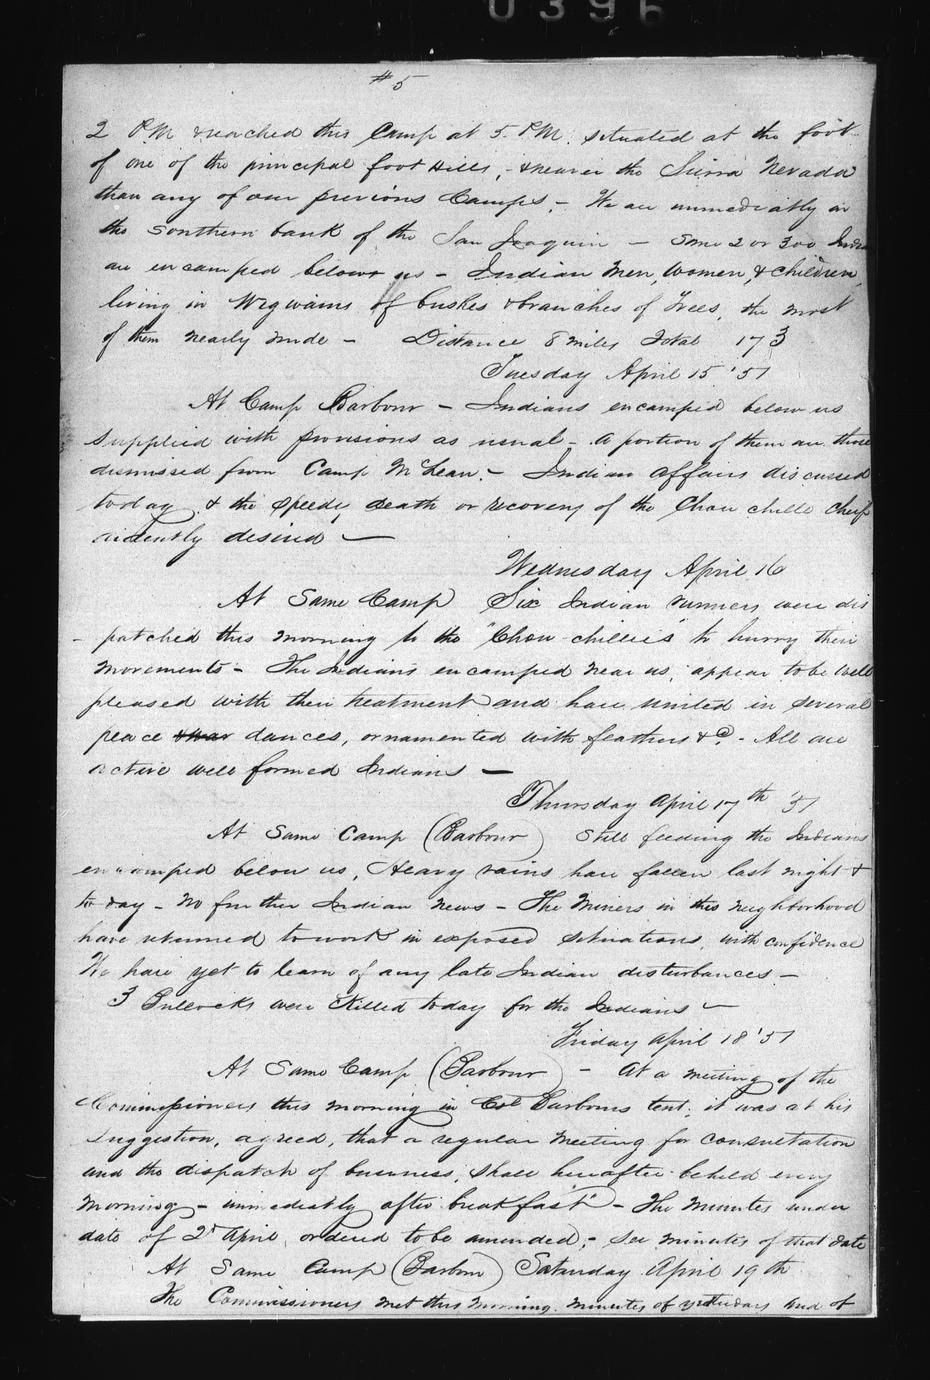 0396
#5
2 P.M. & reached this Camp at 5. P.M. situated at the foot
of one of the principal foot Hills, - & nearer the Sierra Nevada
than any of our previous Camps. - We are immediatly on
the southern bank of the San Joaquin - Some 2 or 300 Indian
are encamped below us - Indian Men, Women, & Children,
living in Wigwams of bushes & branches of Trees, the most
of them nearly nude - Distance 8 miles Total 173
Tuesday April 15 '51
At Camp Barbour - Indians encamped below us
supplied with provisions as usual - A portion of them are those
dismissed from Camp McLean. - Indian affairs discussed
today & the speedy death or recovery of the Chou chille Cheif
evidently desired -
Wednesday April 16
At Same Camp Six Indian runners were dis
- patched this morning to the "Chow-chillies" to hurry their
movements - The Indians encamped near us, appear to be well
pleased with their treatment and have united in several
peace dances, ornamented with feathers &c. - All are
active well formed Indians -
Thursday April 17th '51
At Same Camp (Barbour) Still feeding the Indians
encamped below us, Heavy rains have fallen last night &
to day - No further Indian news - The Miners in this neighborhood
have returned to work in exposed situations, with confidence
We have yet to learn of any late Indian disturbances -
3 Bullocks were Killed today for the Indians -
Friday April 18 '51
At Same Camp (Barbour) - At a meeting of the
Commissioners this morning in Col Barbours tent, it was at his
suggestion, agreed, that a regular meeting for consultation
and the dispatch of business, shall hereafter be held every
morning - immediatly after breakfast - The minutes under
date of 2d April, ordered to be amended, - see minutes of that date
At Same Camp (Barbour) Saturday April 19th
The Commissioners met this morning. minutes of yesterday and of